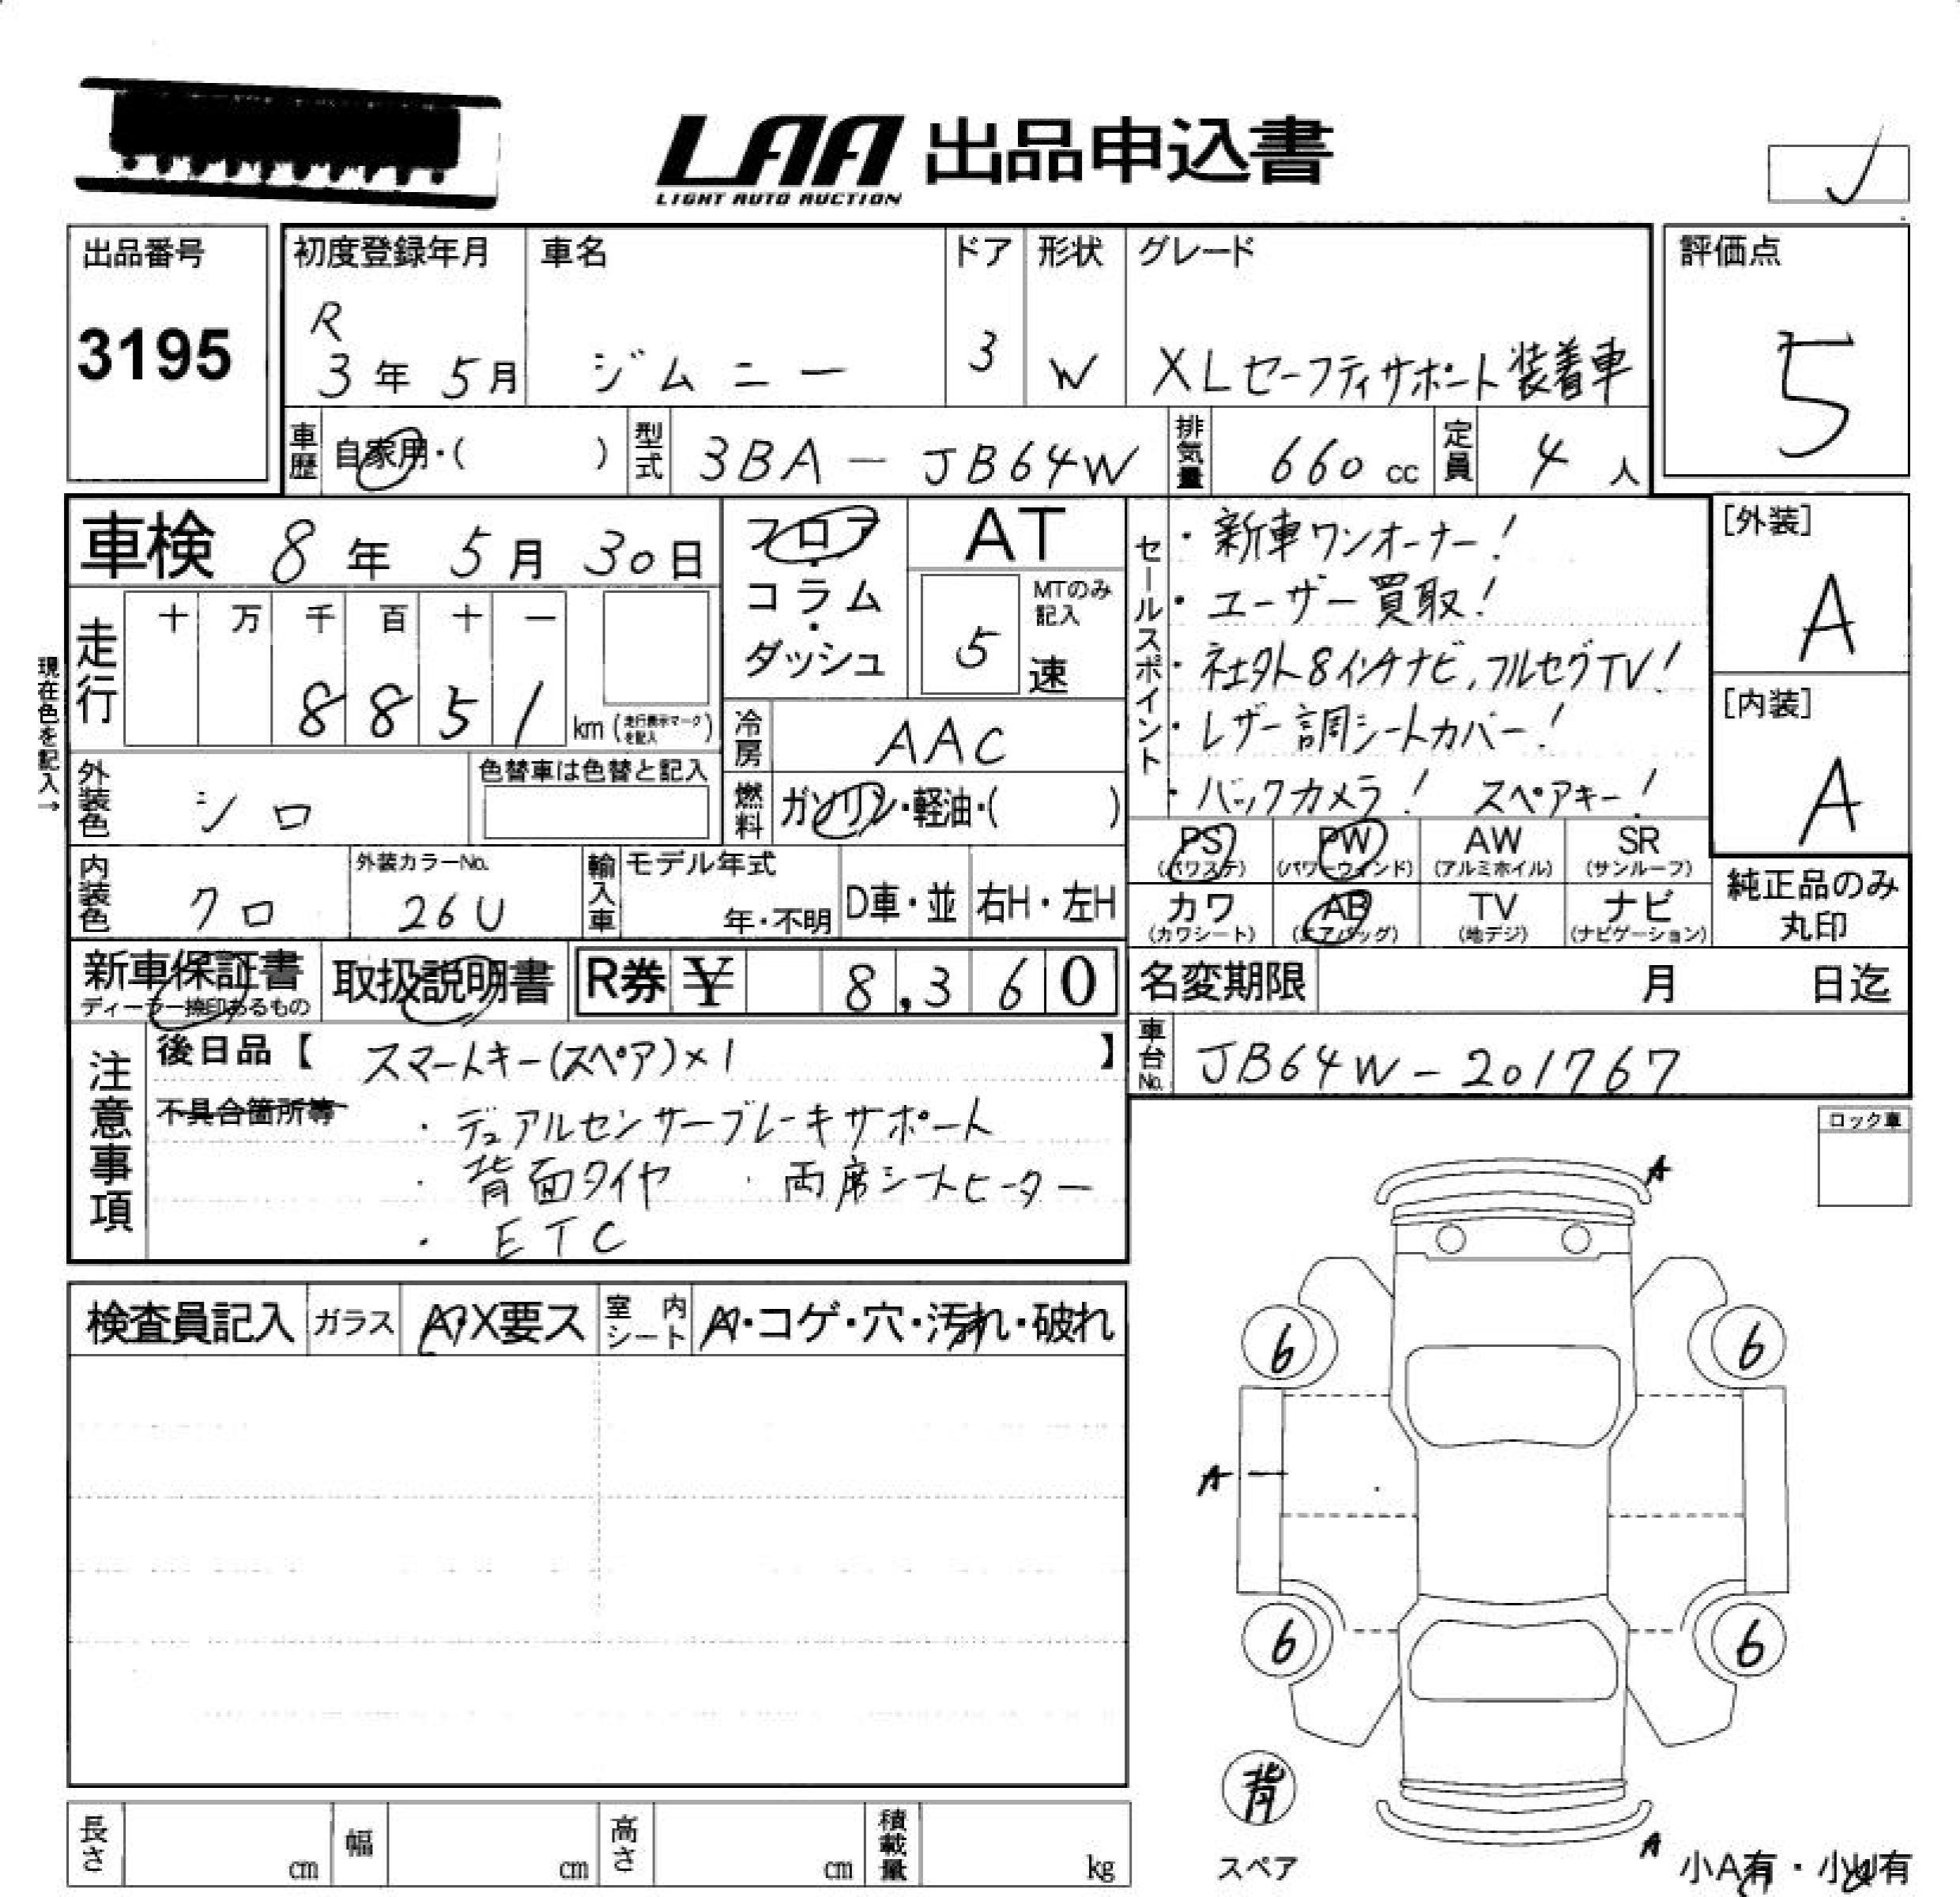 LAA 出品申込書
LIGHT AUTO AUCTION
出品番号
3195
初度登録年月
R
3年 5月
車名
ジムニー
ドア
3
形状
W
グレード
XLセーフティサポート装着車
評価点
5
車歴 自家用・( )
型式 3BA-JB64W
排気量 660 cc
定員 4 人
車検 8年 5月 30日
フロア
・
コラム
・
ダッシュ
AT
MTのみ
記入
5
速
現在色を記入→
走行
十 万 千 百 十 一
8 8 5 1
km (走行表示マークを記入)
冷房 AAC
外装色 シロ
色替車は色替と記入
燃料 ガソリン・軽油・( )
内装色 クロ
外装カラーNo.
26U
輸入車 モデル年式
年・不明
D車・並 右H・左H
セールスポイント
・新車ワンオーナー!
・ユーザー買取!
・社外8インチナビ,フルセグTV!
・レザー調シートカバー!
・バックカメラ! スペアキー!
[外装]
A
[内装]
A
PS (パワステ)
PW (パワーウィンド)
AW (アルミホイル)
SR (サンルーフ)
カワ (カワシート)
AB (エアバッグ)
TV (地デジ)
ナビ (ナビゲーション)
純正品のみ
丸印
新車保証書
ディーラー捺印あるもの
取扱説明書
R券 ¥ 8,360
名変期限 月 日迄
車台No. JB64W-201767
注意事項
後日品【 スマートキー(スペア)×1 】
不具合箇所等
・デュアルセンサーブレーキサポート
・背面タイヤ ・両席シートヒーター
・ETC
ロック車
検査員記入 ガラス A・X要ス 室内シート A・コゲ・穴・汚れ・破れ
A
6
6
A
6
6
背
スペア
A
小A有・小U有
長さ cm
幅 cm
高さ cm
積載量 kg